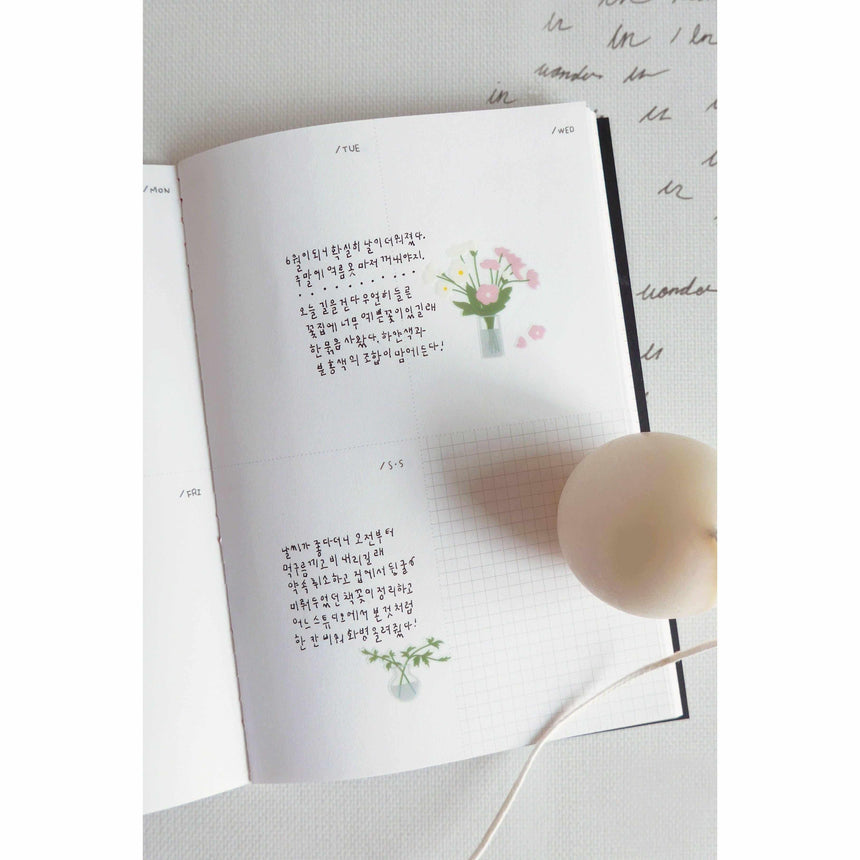 in
in / in
wonder in
in
in
in
wonder
in
/MON
/TUE
/WED
6월이 되니 확실히 날이 더워졌다.
주말에 여름옷 마저 꺼내야지.
오늘 길을 걷다 우연히 들른
꽃집에 너무 예쁜 꽃이 있길래
한 묶음 사왔다. 하얀색과
분홍색의 조합이 맘에 든다!
/FRI
/S·S
날씨가 좋다더니 오전부터
먹구름 끼고 비 내리길래
약속 취소하고 집에서 뒹굴
미뤄두었던 책꽂이 정리하고
어느 스튜디오에서 본 것처럼
한 칸 비워 화병 올려줬다!